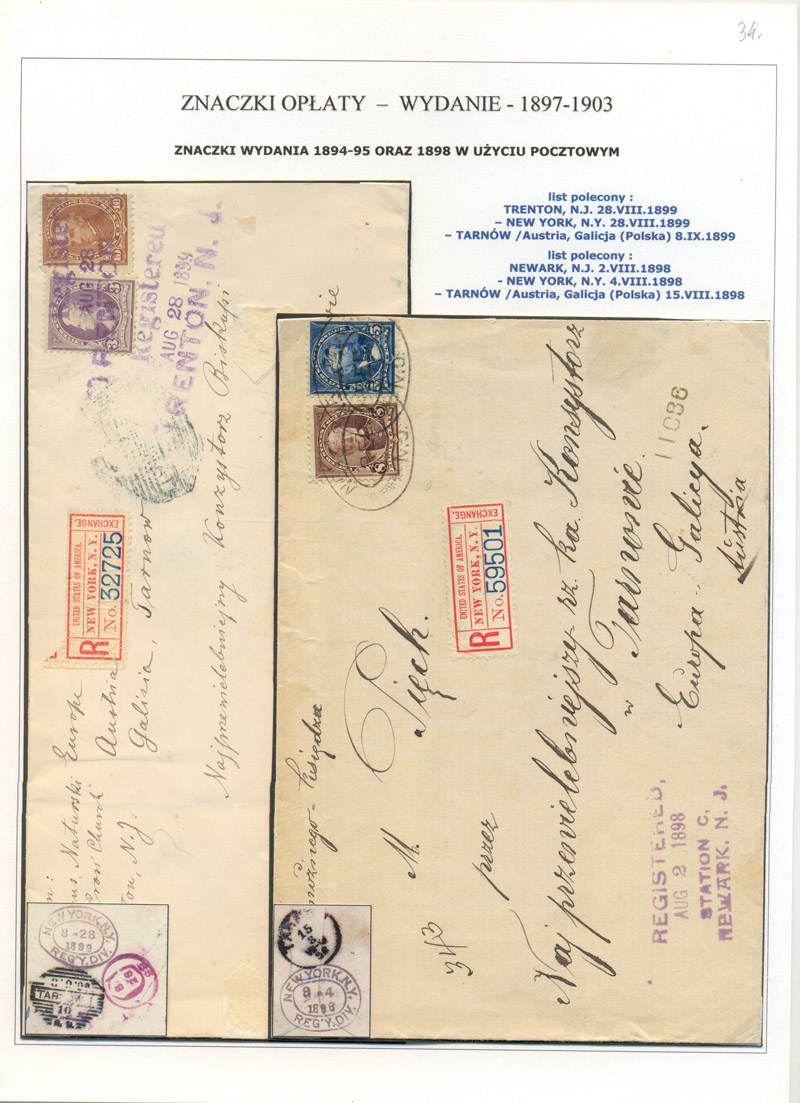 34.
ZNACZKI OPŁATY – WYDANIE - 1897-1903
ZNACZKI WYDANIA 1894-95 ORAZ 1898 W UŻYCIU POCZTOWYM
list polecony :
TRENTON, N.J. 28.VIII.1899
– NEW YORK, N.Y. 28.VIII.1899
– TARNÓW /Austria, Galicja (Polska) 8.IX.1899
list polecony :
NEWARK, N.J. 2.VIII.1898
- NEW YORK, N.Y. 4.VIII.1898
– TARNÓW /Austria, Galicja (Polska) 15.VIII.1898
10
3
Registered
AUG 28 1899
TRENTON, N. J.
Najprzewielebniejny Konzystorz Biskupi
Galizia, Tarnow
Austria
Europe
Naturski
Church
N.J.
EXCHANGE.
UNITED STATES OF AMERICA.
NEW YORK, N.Y.
R No. 32725
5
3
N.J.
11086
EXCHANGE.
UNITED STATES OF AMERICA.
NEW YORK, N.Y.
R No. 59501
Księdza
M. Pięch.
343 przez
Najprzewielebniejszy rz. ka. Konsystorz
w Tarnowie.
Europa - Galicya.
Austria
REGISTERED,
AUG 2 1898
STATION C,
NEWARK. N. J.
NEW YORK, N.Y.
8-28
1899
REG'Y. DIV.
TARNOW
10
15
8
NEW YORK, N.Y.
8-4
1898
REG'Y. DIV.